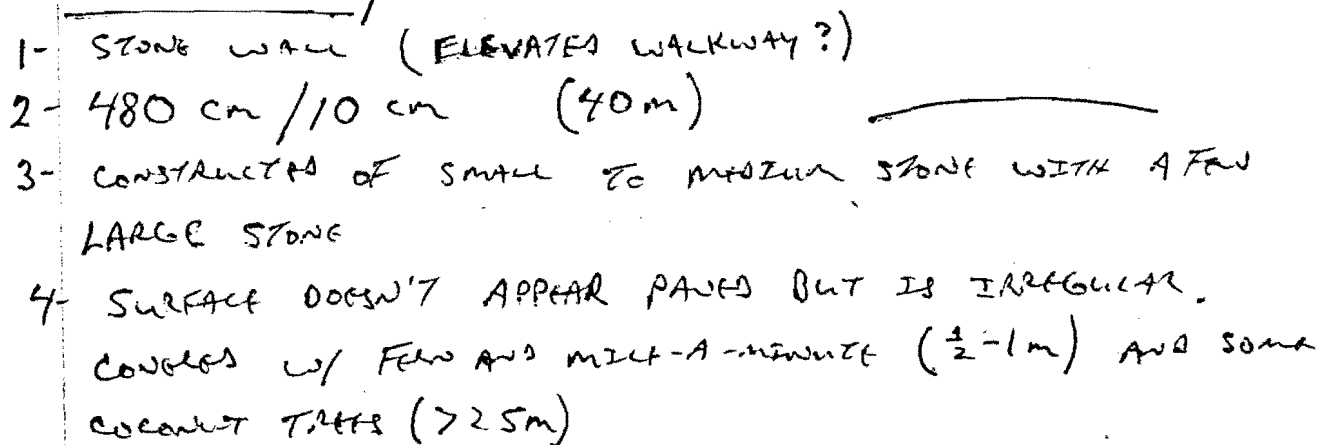 1- STONE WALL (ELEVATED WALKWAY?)
2- 480 cm /10 cm (40m)
3- CONSTRUCTED OF SMALL TO MEDIUM STONE WITH A FEW
LARGE STONE
4- SURFACE DOESN'T APPEAR PAVED BUT IS IRREGULAR.
COVERED W/ FERN AND MILE-A-MINUTE (1/2-1m) AND SOME
COCONUT TREES (>25m)